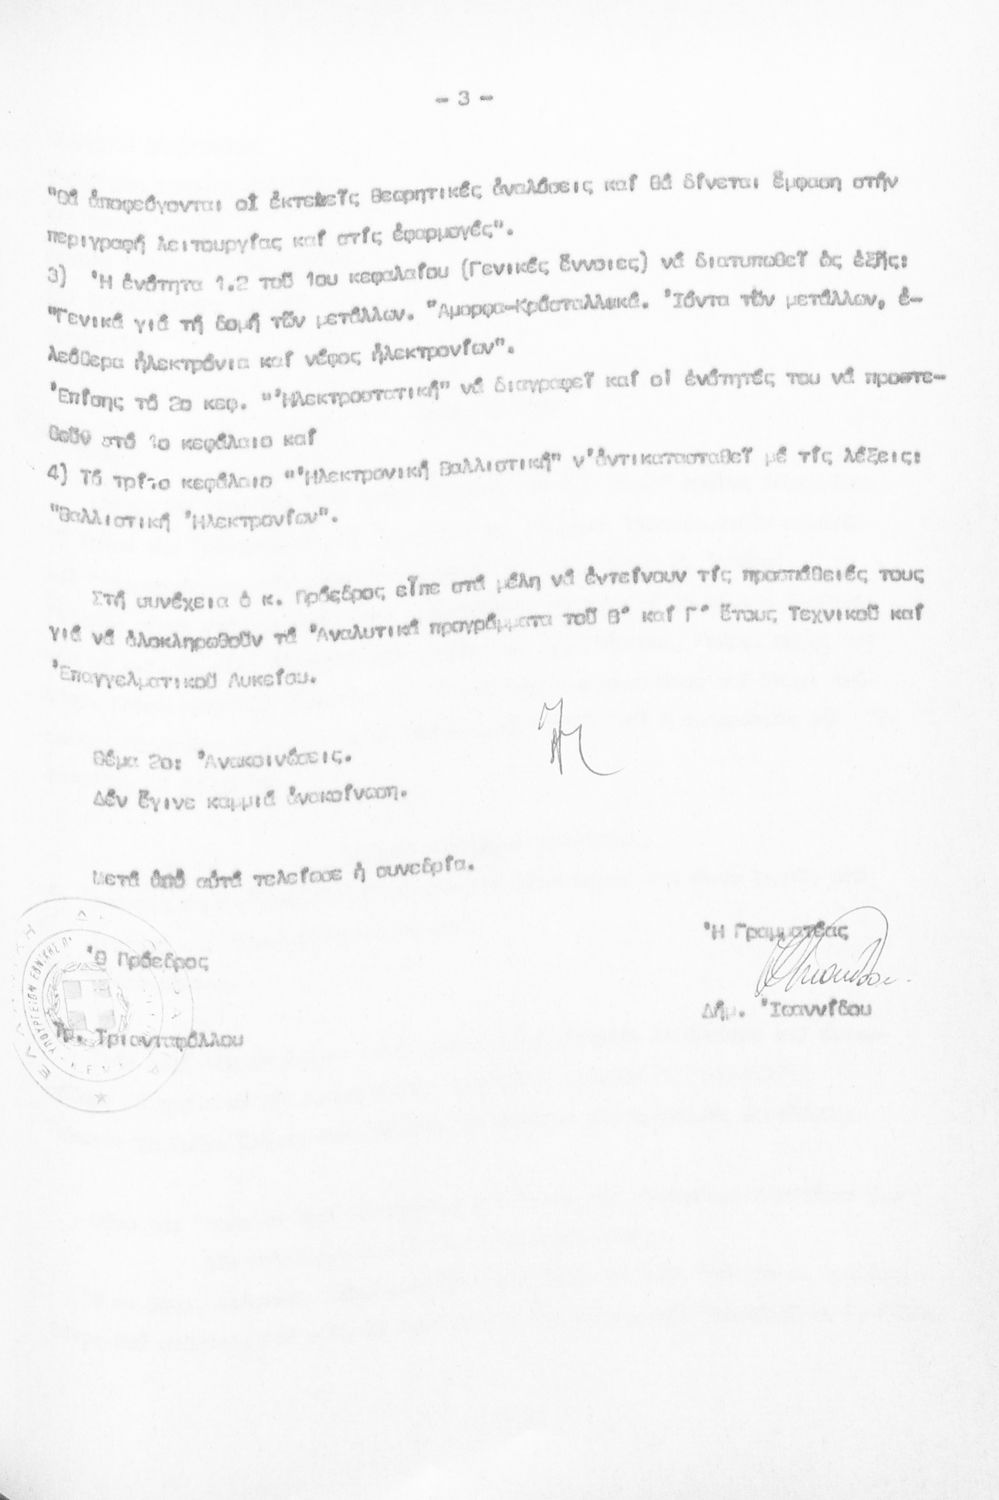 - 3 -
"Θά ἀποφεύγονται οἱ ἐκτενεῖς θεωρητικές ἀναλύσεις καί θά δίνεται ἔμφαση στήν
περιγραφή λειτουργίας καί στίς ἐφαρμογές".
3) Ἡ ἑνότητα 1.2 τοῦ 1ου κεφαλαίου (Γενικές ἔννοιες) νά διατυπωθεῖ ὡς ἑξῆς:
"Γενικά γιά τή δομή τῶν μετάλλων. Ἄμορφα-Κρύσταλλικά. Ἰόντα τῶν μετάλλων, ἐ-
λεύθερα ἠλεκτρόνια καί νέφος ἠλεκτρονίων".
Ἐπίσης τό 2ο κεφ. "Ἠλεκτροστατική" νά διαγραφεῖ καί οἱ ἑνότητές του νά προστε-
θοῦν στό 1ο κεφάλαιο καί
4) Τό τρίτο κεφάλαιο "Ἠλεκτρονική Βαλλιστική" ν'ἀντικατασταθεῖ μέ τίς λέξεις:
"Βαλλιστική Ἠλεκτρονίων".
Στή συνέχεια ὁ κ. Πρόεδρος εἶπε στά μέλη νά ἐντείνουν τίς προσπάθειές τους
γιά νά ὁλοκληρωθοῦν τά Ἀναλυτικά προγράμματα τοῦ Β' καί Γ' Ἔτους Τεχνικοῦ καί
Ἐπαγγελματικοῦ Λυκείου.
Θέμα 2ο: Ἀνακοινώσεις.
Δέν ἔγινε καμμιά ἀνακοίνωση.
Μετά ἀπό αὐτά τελείωσε ἡ συνεδρία.
Ὁ Πρόεδρος
Ἡ Γραμματέας
Τρ. Τριανταφύλλου
Δήμ. Ἰωαννίδου
ΥΠΟΥΡΓΕΙΟΝ ΕΘΝΙΚΗΣ Π